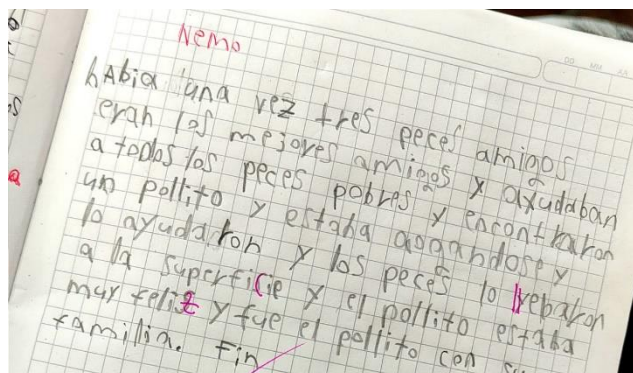 Nemo
hAbia una vez tres peces amigos
eran los mejores amigos y ayudaban
a todos los peces pobres y encontraron
un pollito y estaba aogandose y
lo ayudaron y los peces lo llebaron
a la superficie y el pollito estaba
muy feliz y fue el pollito con
familia. Fin